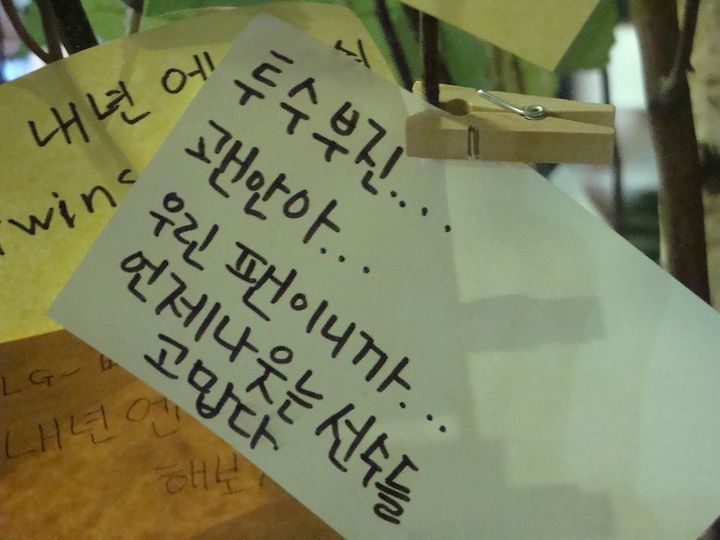 내년 에
Twins
투수부진....
괜안아...
우린 팬이니까...
언제나웃는 선수들
고맙다
LG~
내년 엔
해보